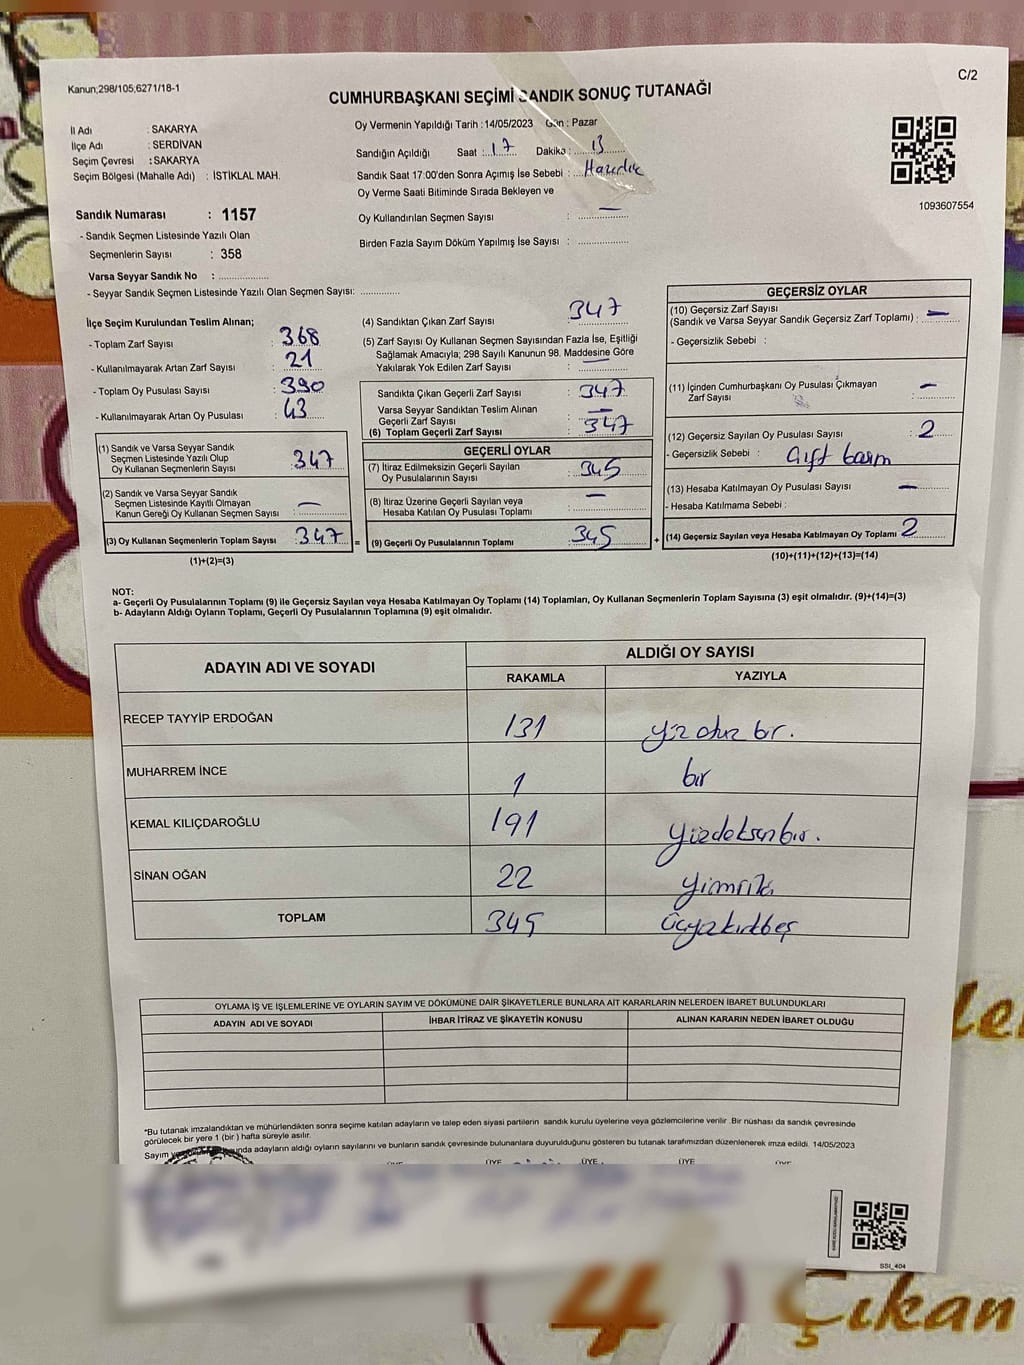 Kanun;298/105;6271/18-1
C/2
CUMHURBAŞKANI SEÇİMİ SANDIK SONUÇ TUTANAĞI
İl Adı : SAKARYA
İlçe Adı : SERDİVAN
Seçim Çevresi : SAKARYA
Seçim Bölgesi (Mahalle Adı) : İSTİKLAL MAH.
Oy Vermenin Yapıldığı Tarih :14/05/2023 Gün : Pazar
Sandığın Açıldığı Saat :..17.. Dakika :..13..
Sandık Saat 17:00'den Sonra Açımış İse Sebebi :....Hazırlık
Oy Verme Saati Bitiminde Sırada Bekleyen ve
Oy Kullandırılan Seçmen Sayısı : —
Birden Fazla Sayım Döküm Yapılmış İse Sayısı : ....................
1093607554
Sandık Numarası : 1157
- Sandık Seçmen Listesinde Yazılı Olan
Seçmenlerin Sayısı : 358
Varsa Seyyar Sandık No : ....................
- Seyyar Sandık Seçmen Listesinde Yazılı Olan Seçmen Sayısı: ...............
İlçe Seçim Kurulundan Teslim Alınan;
- Toplam Zarf Sayısı : 368
- Kullanılmayarak Artan Zarf Sayısı : 21
- Toplam Oy Pusulası Sayısı : 390
- Kullanılmayarak Artan Oy Pusulası : 43
(1) Sandık ve Varsa Seyyar Sandık
Seçmen Listesinde Yazılı Olup
Oy Kullanan Seçmenlerin Sayısı : 347
(2) Sandık ve Varsa Seyyar Sandık
Seçmen Listesinde Kayıtlı Olmayan
Kanun Gereği Oy Kullanan Seçmen Sayısı : —
(3) Oy Kullanan Seçmenlerin Toplam Sayısı 347 =
(1)+(2)=(3)
(4) Sandıktan Çıkan Zarf Sayısı : 347
(5) Zarf Sayısı Oy Kullanan Seçmen Sayısından Fazla İse, Eşitliği
Sağlamak Amacıyla; 298 Sayılı Kanunun 98. Maddesine Göre
Yakılarak Yok Edilen Zarf Sayısı : —
Sandıkta Çıkan Geçerli Zarf Sayısı : 347
Varsa Seyyar Sandıktan Teslim Alınan
Geçerli Zarf Sayısı : —
(6) Toplam Geçerli Zarf Sayısı : 347
GEÇERLİ OYLAR
(7) İtiraz Edilmeksizin Geçerli Sayılan
Oy Pusulalarının Sayısı : 345
(8) İtiraz Üzerine Geçerli Sayılan veya
Hesaba Katılan Oy Pusulası Toplamı : —
(9) Geçerli Oy Pusulalarının Toplamı : 345 +
GEÇERSİZ OYLAR
(10) Geçersiz Zarf Sayısı
(Sandık ve Varsa Seyyar Sandık Geçersiz Zarf Toplamı) : —
- Geçersizlik Sebebi :
(11) İçinden Cumhurbaşkanı Oy Pusulası Çıkmayan
Zarf Sayısı : —
(12) Geçersiz Sayılan Oy Pusulası Sayısı : 2
- Geçersizlik Sebebi : Çift basım
(13) Hesaba Katılmayan Oy Pusulası Sayısı : —
- Hesaba Katılmama Sebebi :
(14) Geçersiz Sayılan veya Hesaba Katılmayan Oy Toplamı 2
(10)+(11)+(12)+(13)=(14)
NOT:
a- Geçerli Oy Pusulalarının Toplamı (9) ile Geçersiz Sayılan veya Hesaba Katılmayan Oy Toplamı (14) Toplamları, Oy Kullanan Seçmenlerin Toplam Sayısına (3) eşit olmalıdır. (9)+(14)=(3)
b- Adayların Aldığı Oyların Toplamı, Geçerli Oy Pusulalarının Toplamına (9) eşit olmalıdır.
ADAYIN ADI VE SOYADI ALDIĞI OY SAYISI
RAKAMLA YAZIYLA
RECEP TAYYİP ERDOĞAN 131 yüz otuz bir.
MUHARREM İNCE 1 bir
KEMAL KILIÇDAROĞLU 191 yüzdoksanbir.
SİNAN OĞAN 22 yirmiiki
TOPLAM 345 üçyüzkırkbeş
OYLAMA İŞ VE İŞLEMLERİNE VE OYLARIN SAYIM VE DÖKÜMÜNE DAİR ŞİKAYETLERLE BUNLARA AİT KARARLARIN NELERDEN İBARET BULUNDUKLARI
ADAYIN ADI VE SOYADI İHBAR İTİRAZ VE ŞİKAYETİN KONUSU ALINAN KARARIN NEDEN İBARET OLDUĞU
*Bu tutanak imzalandıktan ve mühürlendikten sonra seçime katılan adayların ve talep eden siyasi partilerin sandık kurulu üyelerine veya gözlemcilerine verilir .Bir nüshası da sandık çevresinde
görülecek bir yere 1 (bir ) hafta süreyle asılır.
Sayım ve unda adayların aldığı oyların sayılarını ve bunların sandık çevresinde bulunanlara duyurulduğunu gösteren bu tutanak tarafımızdan düzenlenerek imza edildi. 14/05/2023
ÜYE ÜYE ÜYE ÜYE
SSI_404
4 Çıkan